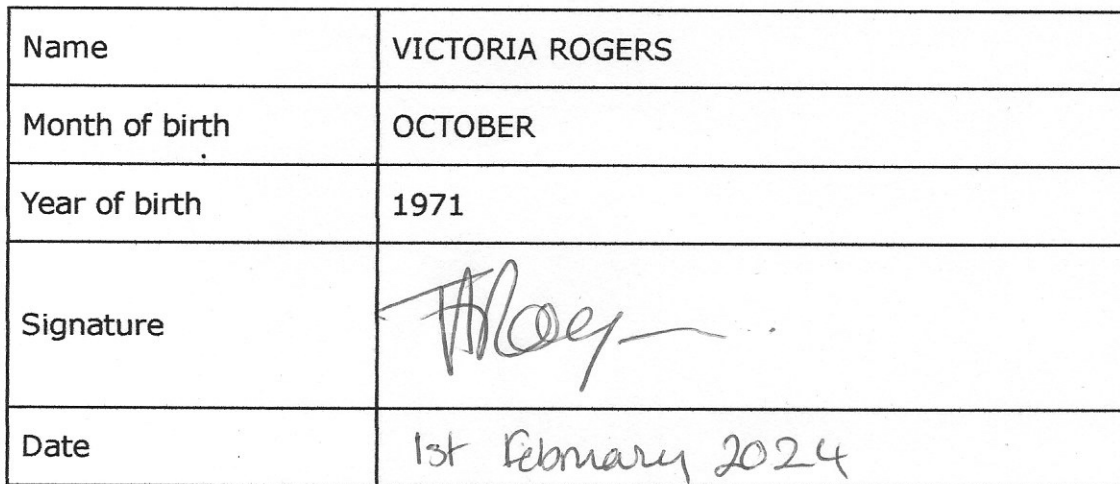 Name VICTORIA ROGERS
Month of birth OCTOBER
Year of birth 1971
Signature
Date 1st February 2024